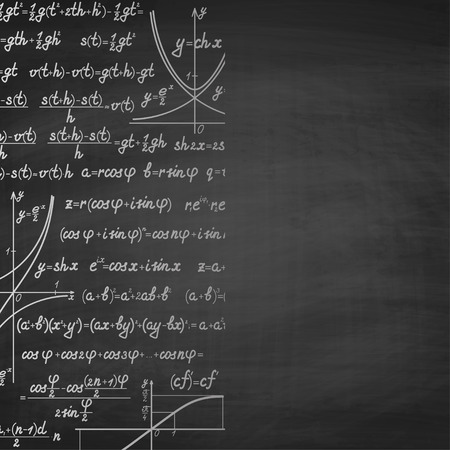 ½gt²=½g(t²+2th+h²)-½gt²=
=gth+½gh² s(t)=½gt²
gt v(t+h)-v(t)=g(t+h)-gt
y=chx
-s(t) s(t+h)-s(t)/h =v(t)
y=eˣ/2
1
0
y
-v(t) s(t+h)-s(t)/h =gt+½gh sh2x=2s
-s(t)=v(t)h a=rcosφ b=rsinφ q=
z=r(cosφ+isinφ)
y=eˣ/2
(cosφ+isinφ)ⁿ=cosnφ+isin
y=shx eⁱˣ=cosx+isinx z=a+
(a+b)²=a²+2ab+b² (a+b)³=
1
0
1
x
y
(a²+b²)(x²+y²)=(ax+by)²+(ay-bx)²=
cosφ+cos2φ+cos3φ+...+cosnφ=
=cos φ/2 -cos (2n+1)φ/2 / 2sin φ/2
(cf)'=cf'
+(n-1)d/2 n
y
π/2
π/4
0
1